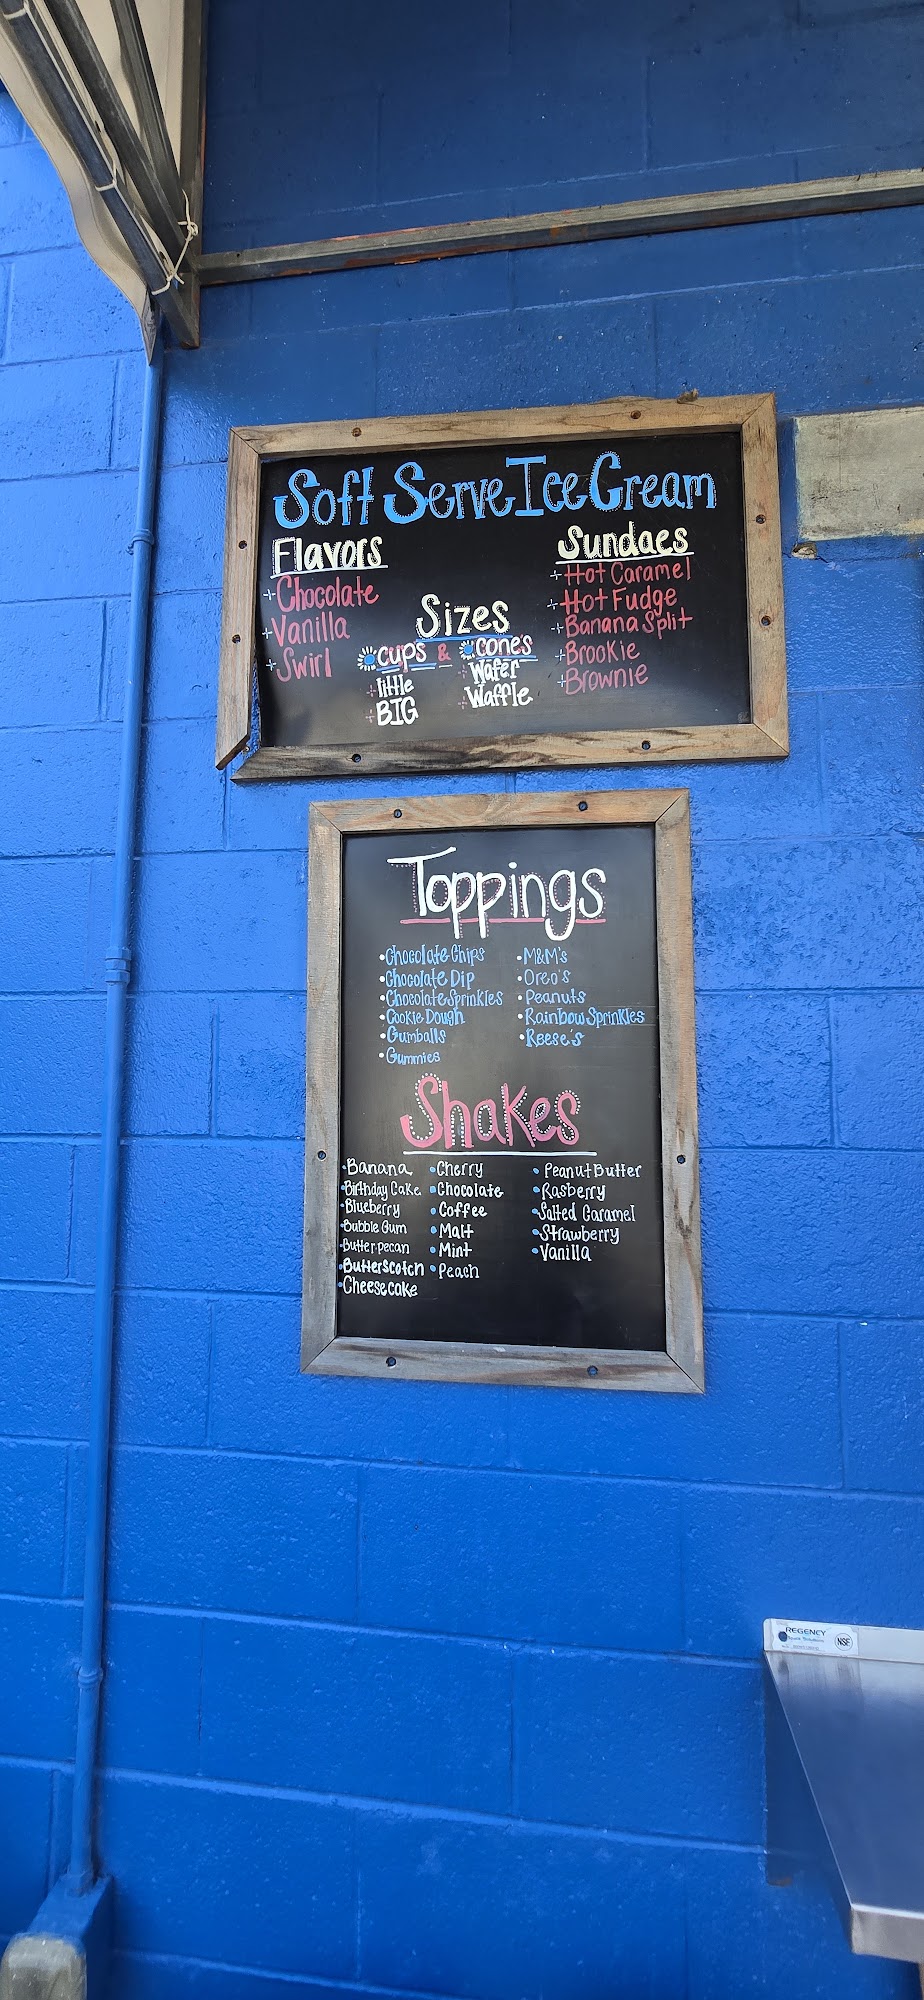 Soft Serve Ice Cream
Flavors
Chocolate
Vanilla
Swirl
Sizes
cups & cones
little
BIG
Wafer
Waffle
Sundaes
Hot Caramel
Hot Fudge
Banana Split
Brookie
Brownie
Toppings
Chocolate Chips
Chocolate Dip
Chocolate Sprinkles
Cookie Dough
Gumballs
Gummies
M&M's
Oreo's
Peanuts
Rainbow Sprinkles
Reese's
Shakes
Banana
Birthday Cake
Blueberry
Bubble Gum
Butter pecan
Butterscotch
Cheesecake
Cherry
Chocolate
Coffee
Malt
Mint
Peach
Peanut Butter
Rasberry
Salted Caramel
Strawberry
Vanilla
REGENCY
NSF